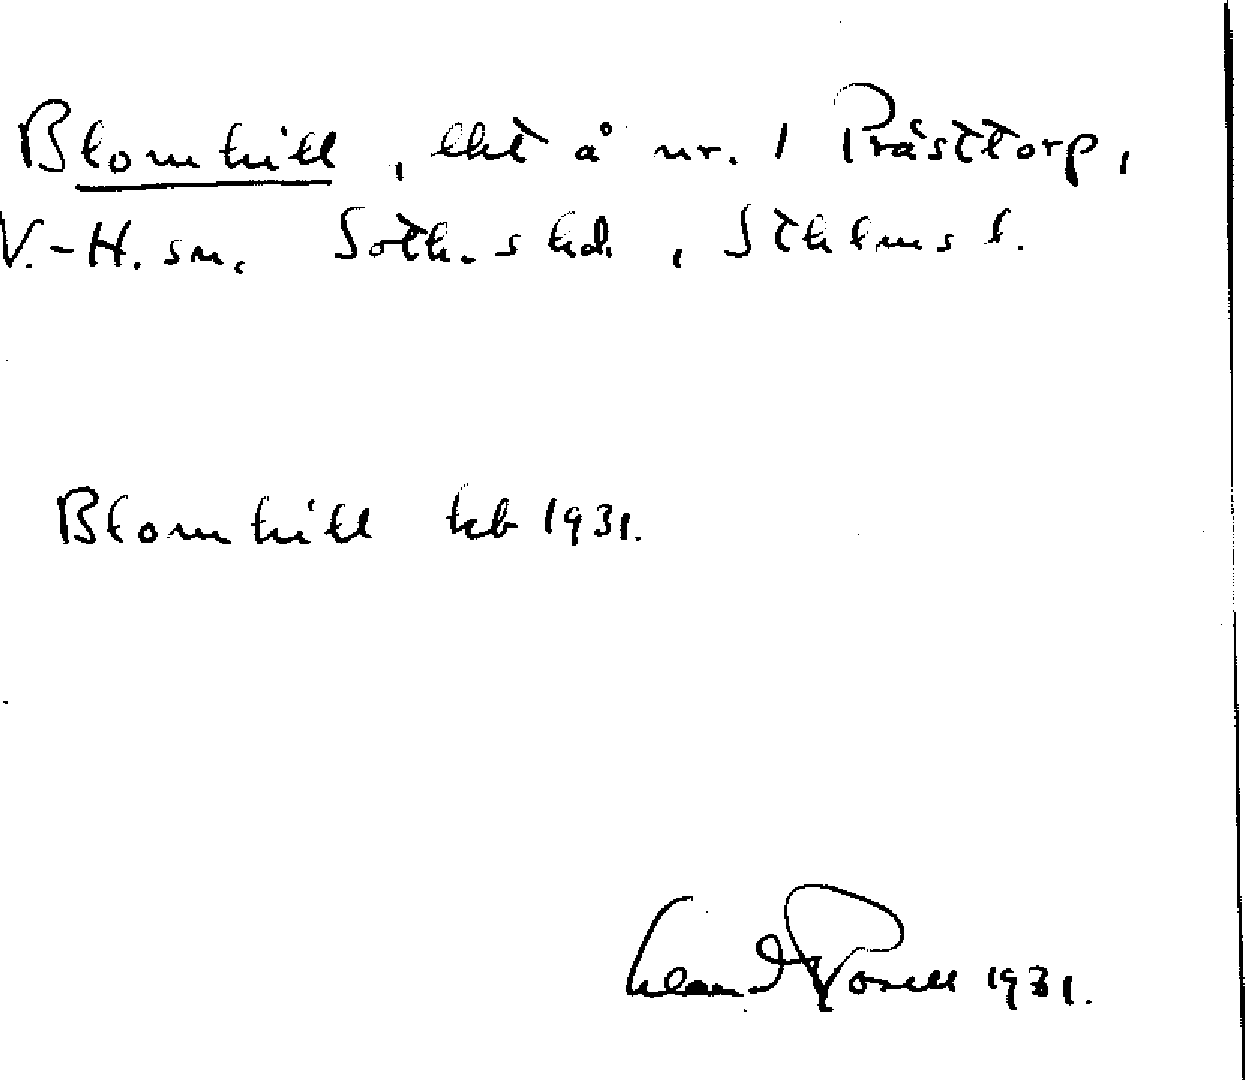 Blomhill, lht å nr. 1 Prästtorp,
V.-H. sn. Soth.s hd, Sthlms l.
Blomhill 1931.
1931.